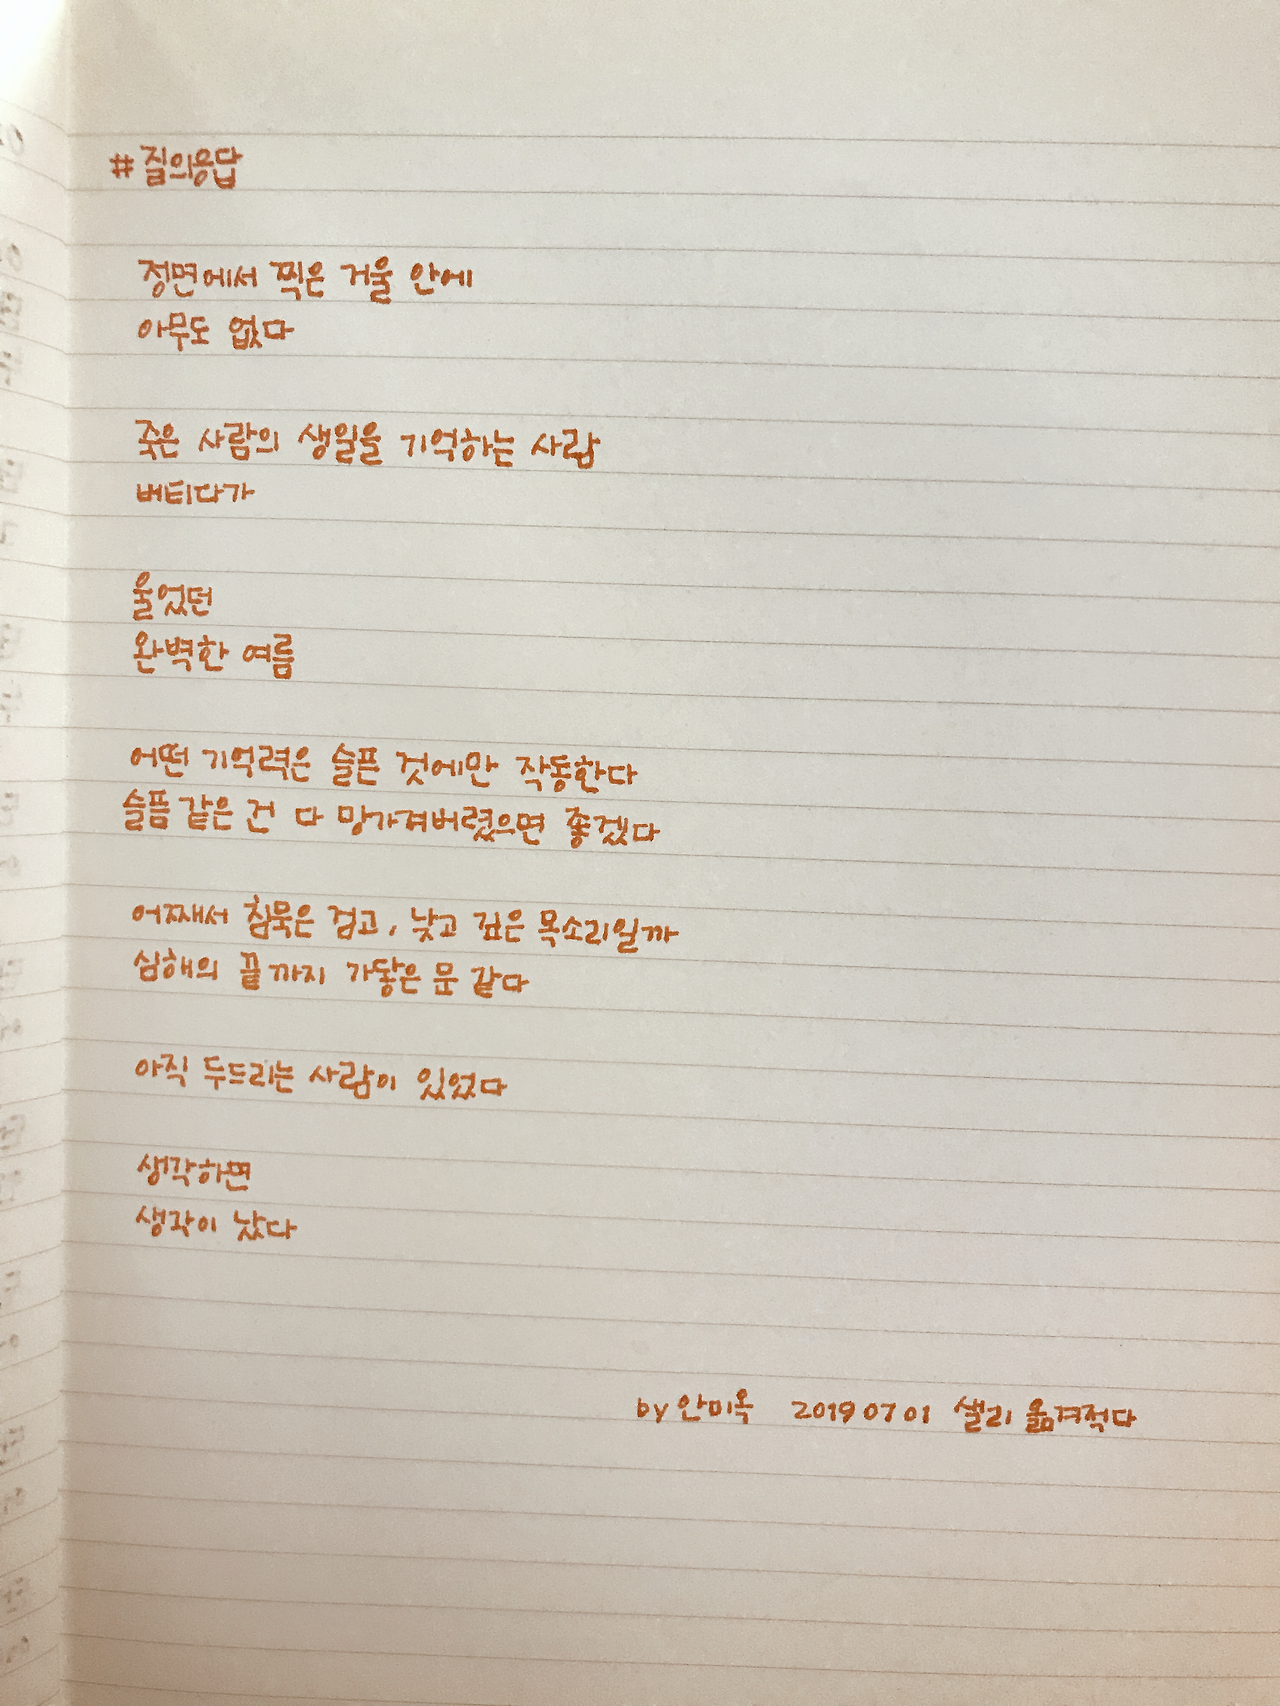 # 질의응답
정면에서 찍은 거울 안에
아무도 없다
죽은 사람의 생일을 기억하는 사람
버티다가
울었던
완벽한 여름
어떤 기억력은 슬픈 것에만 작동한다
슬픔 같은 건 다 망가져버렸으면 좋겠다
어째서 침묵은 검고, 낮고 깊은 목소리일까
심해의 끝까지 가닿은 문 같다
아직 두드리는 사람이 있었다
생각하면
생각이 났다
by 안미옥 2019 07 01 샐리 옮겨적다